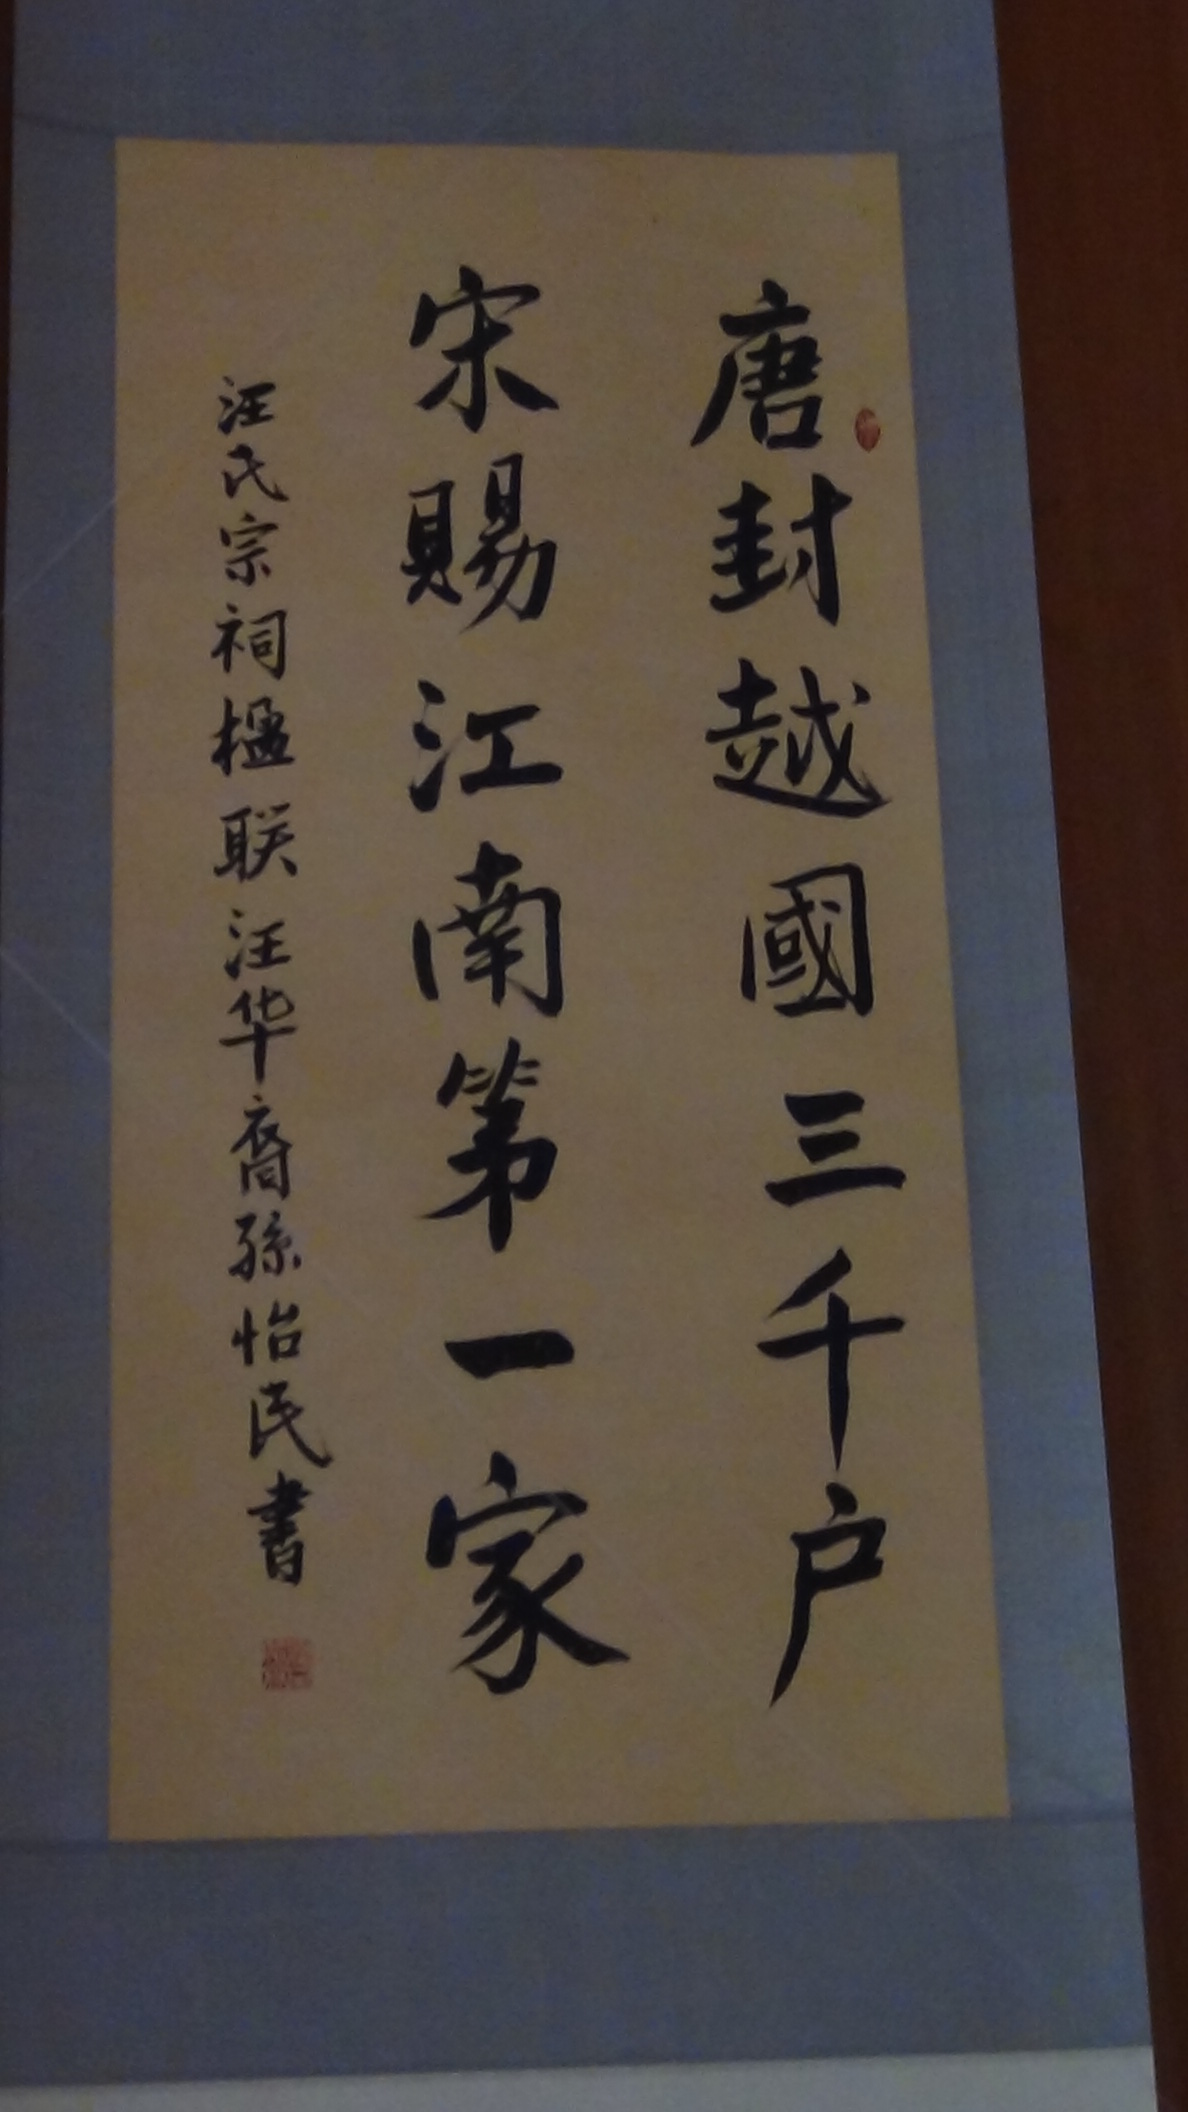 唐封越國三千户
宋赐江南第一家
汪氏宗祠楹联汪华裔孫怡民書